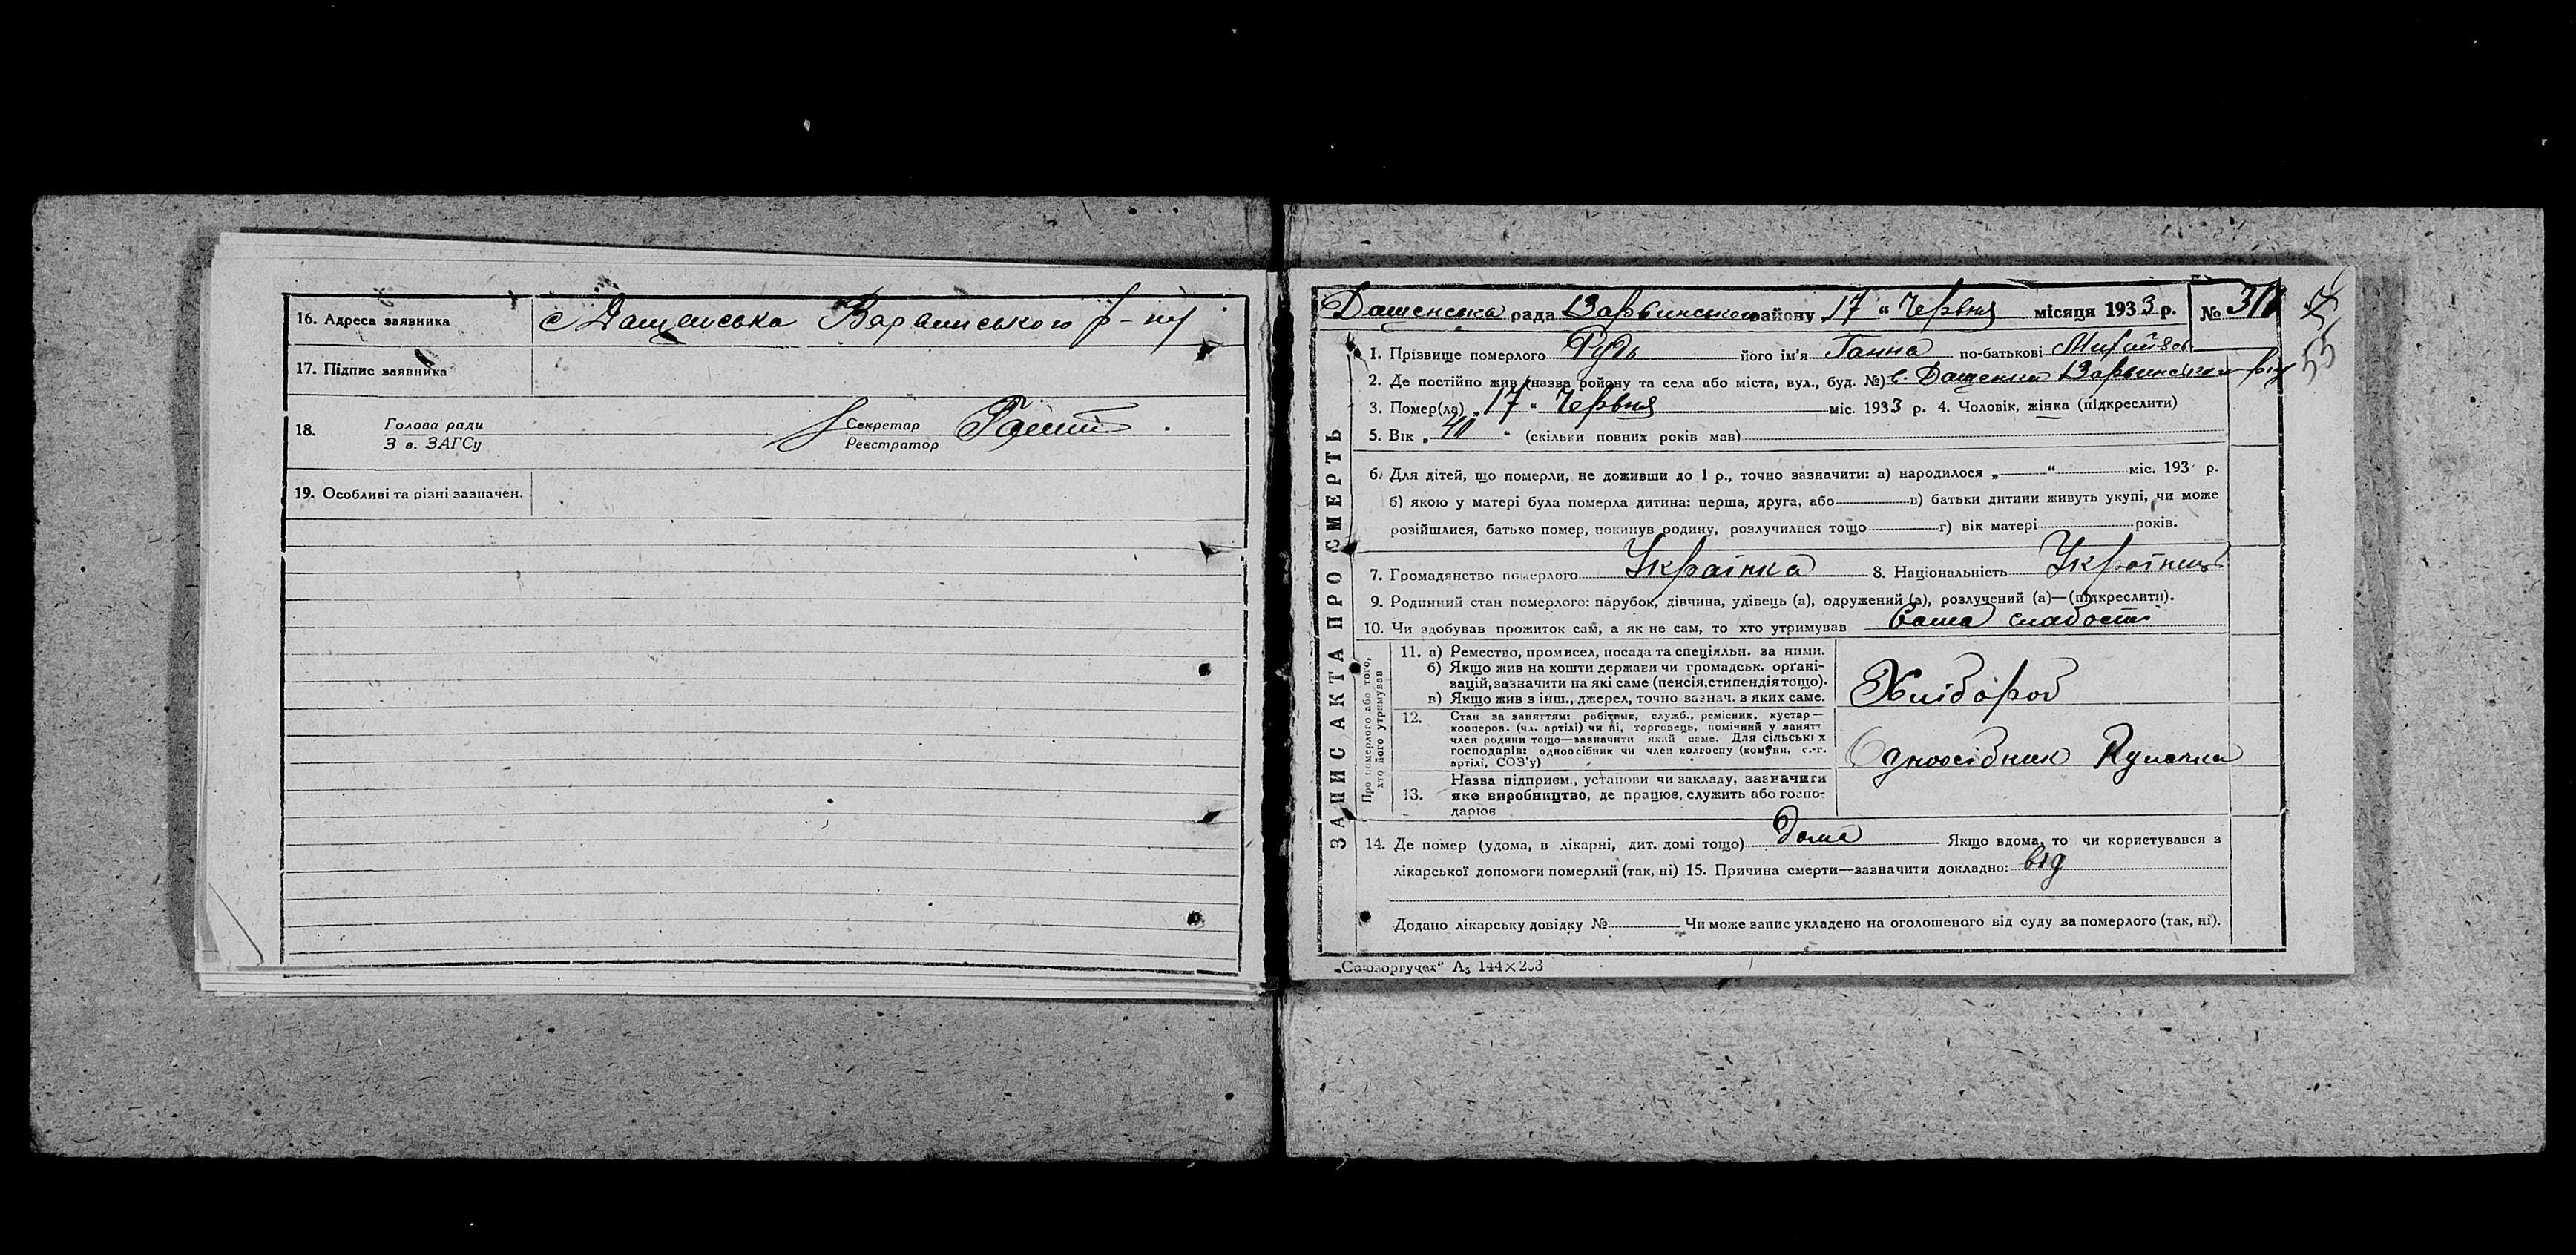 16. Адреса заявника с Дащенська Варвинського р-ну
17. Підпис заявника
18. Голова ради Секретар
З в. ЗАГСу Реєстратор
19. Особливі та різні зазначен.
Дащенська рада Варвинського району 17 " Червня місяця 1933 р. №
55
ЗАПИС АКТА ПРО СМЕРТЬ
1. Прізвище померлого Рудь його ім'я Ганна по-батькові
2. Де постійно жив (назва району та села або міста, вул., буд. №) с. Дащенки Варвинського р-ну
3. Помер(ла) „ 17 " Червня міс. 1933 р. 4. Чоловік, жінка (підкреслити)
5. Вік „ 40 " (скільки повних років мав)
6. Для дітей, що померли, не доживши до 1 р., точно зазначити: а) народилося „ " міс. 193 р.
б) якою у матері була померла дитина: перша, друга, або в) батьки дитини живуть укупі, чи може
розійшлися, батько помер, покинув родину, розлучилися тощо г) вік матері років.
7. Громадянство померлого Українка 8. Національність Українець
9. Родинний стан померлого: парубок, дівчина, удівець (а), одружений (а), розлучений (а)—(підкреслити).
10. Чи здобував прожиток сам, а як не сам, то хто утримував Сама
Про померлого або того, хто його утримував
11. а) Ремество, промисел, посада та спеціяльн. за ними.
б) Якщо жив на кошти держави чи громадськ. орґані-
зацій, зазначити на які саме (пенсія, стипендія тощо).
в) Якщо жив з інш., джерел, точно зазнач. з яких саме.
Хлібороб
12. Стан за заняттям: робітник, служб., ремісник, кустар—
кооперов. (чл. артілі) чи ні, торговець, помічний у занятт
член родини тощо—зазначити який саме. Для сільських
господарів: одноосібник чи член колгоспу (комуни, с.-г.
артілі, СОЗ'у)
Одноосібник
13. Назва підприєм., установи чи закладу, зазначити
яке виробництво, де працює, служить або госпо-
дарює
14. Де помер (удома, в лікарні, дит. домі тощо) дома Якщо вдома, то чи користувався з
лікарської допомоги померлий (так, ні) 15. Причина смерти—зазначити докладно: від
Додано лікарську довідку № Чи може запис укладено на оголошеного від суду за померлого (так, ні).
„Союзоргучет" А₅ 144×203